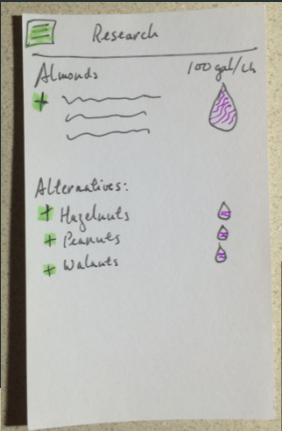 Research
Almonds 100 gal/lb
+
Alternatives:
+ Hazelnuts
+ Peanuts
+ Walnuts